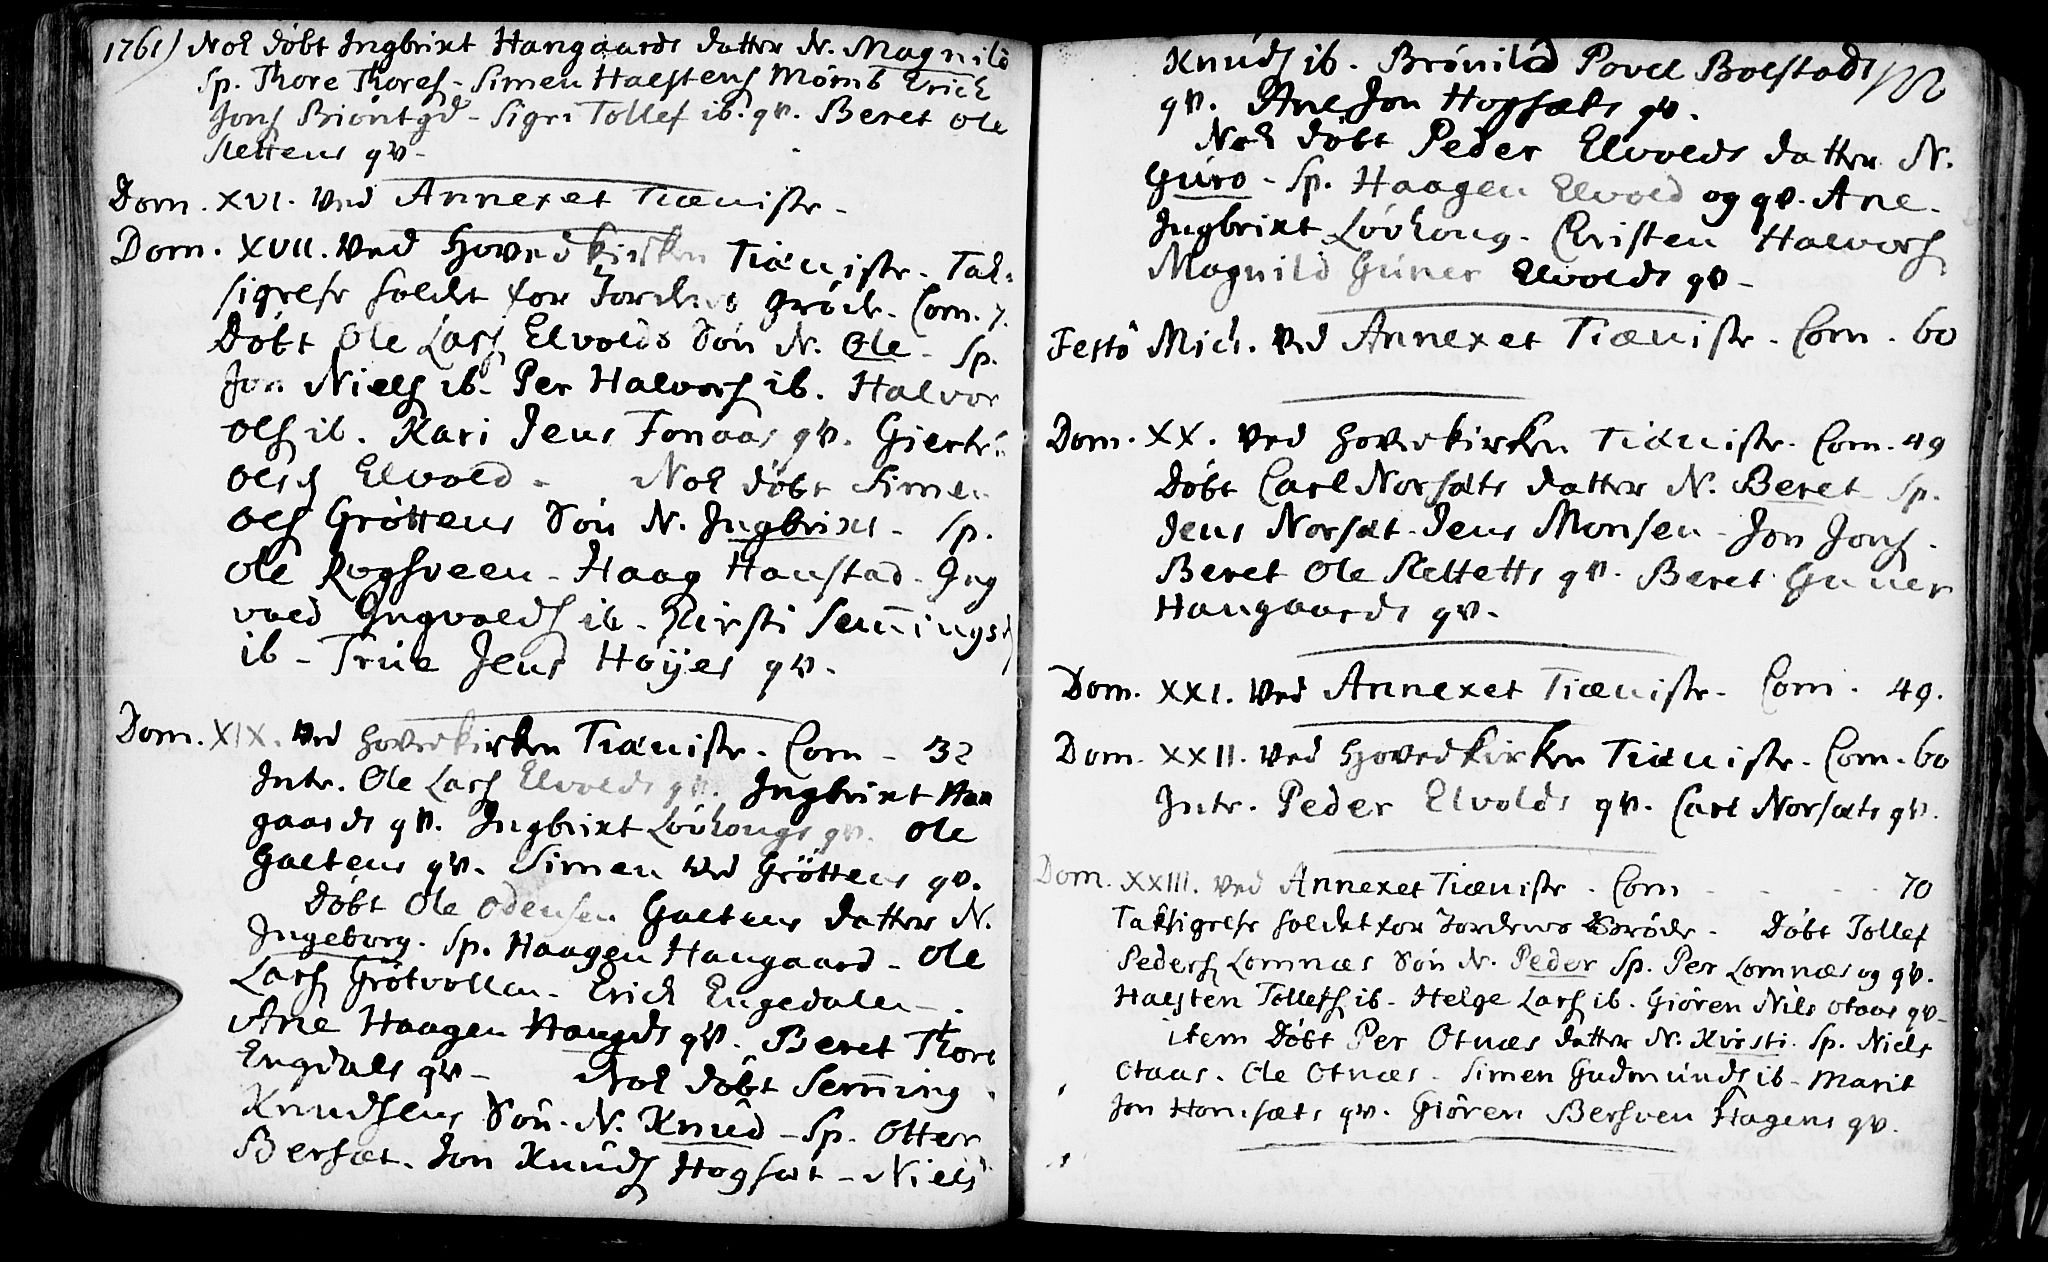 1761) Nok døbt Ingbrixt Hangaards datter N. Magnild
Sp. Thore Thores - Simen Halstens Mømb Erich
Jons Brióntgd - Sigri Tollef ib. qv. Beret Ole
Slettens qv -
Dom. XVI. Ved Annexet Tiænistr -
Dom. XVII. Ved Hovedkirken Tiænistr - Tak-
sigelse holdt for Jordens Gróde. Com. 7.
Døbt Ole Lars Elvolds Són N. Ole - Sp.
Jon Niels ib - Per Halvors ib. Halvor
Ols ib. Kari Jens Fonaas qv. Giertr
Olsd Elvold - Nok døbt Simen
Ols Gröttens Són N. Ingbrixt - Sp.
Ole Rogsveen - Haag Hanstad - Ing
vald Ingvalds ib - Kirsti Semings
ib - Trúe Jens Höyes qv.
Dom. XIX. Ved Hovedkirken Tiænistr - Com - 32
Intr. Ole Lars Elvolds qv. Ingbrixt Han
gaards qv. Ingbrixt Lóvhongs qv. Ole
Galtens qv. Simen Gröttens qv.
Døbt Ole Odensen Galtens datter N.
Ingeborg. Sp. Haagen Hangaard - Ole
Lars Grótvollen - Erich Engedalen -
Ane Haagen Hangds qv. Beret Thore
Engdals qv - Nok døbt Seming
Knudsens Són. N. Knud - Sp. Otter
Bersæt. Jon Knuds Hogsæt - Niels
Knuds ib. Brónild Povel Bolstads 102
qv. Ane Jon Hogsæts qv.
Nok døbt Peder Elvolds datter N.
Guro - Sp. Haagen Elvold og qv. Ane -
Ingbrixt Lóvhong - Christen Halvors
Magnild Gúner Elvolds qv -
Festo Mich. Ved Annexet Tiænistr - Com. 60
Dom. XX. Ved Hovedkirken Tiænistr. Com. 49
Døbt Carl Norsæts datter N. Beret Sp.
Jens Norsæt - Jens Monsen - Jon Jons -
Beret Ole Sletten qv. Beret Guner
Hangaards qv -
Dom. XXI. Ved Annexet Tiænistr - Com. 49.
Dom. XXII. Ved Hovedkirken Tiænistr - Com. 60
Intr. Peder Elvolds qv. Carl Norsæts qv.
Dom. XXIII. Ved Annexet Tiænistr - Com - - - 70
Taksigelse holdt for Jordens Gróde - Døbt Tollef
Peders Lomnæs Són N. Peder Sp. Per Lomnæs og qv.
Halsten Tollefs ib - Helge Lars ib. Giøren Nils Otaas qv -
item Døbt Per Otnæs datter N. Kirsti. Sp. Niels
Otaas. Ole Otnæs - Simen Gudmunds ib - Marit
Jon Homsæts qv. Giøren Bersven Hagens qv.